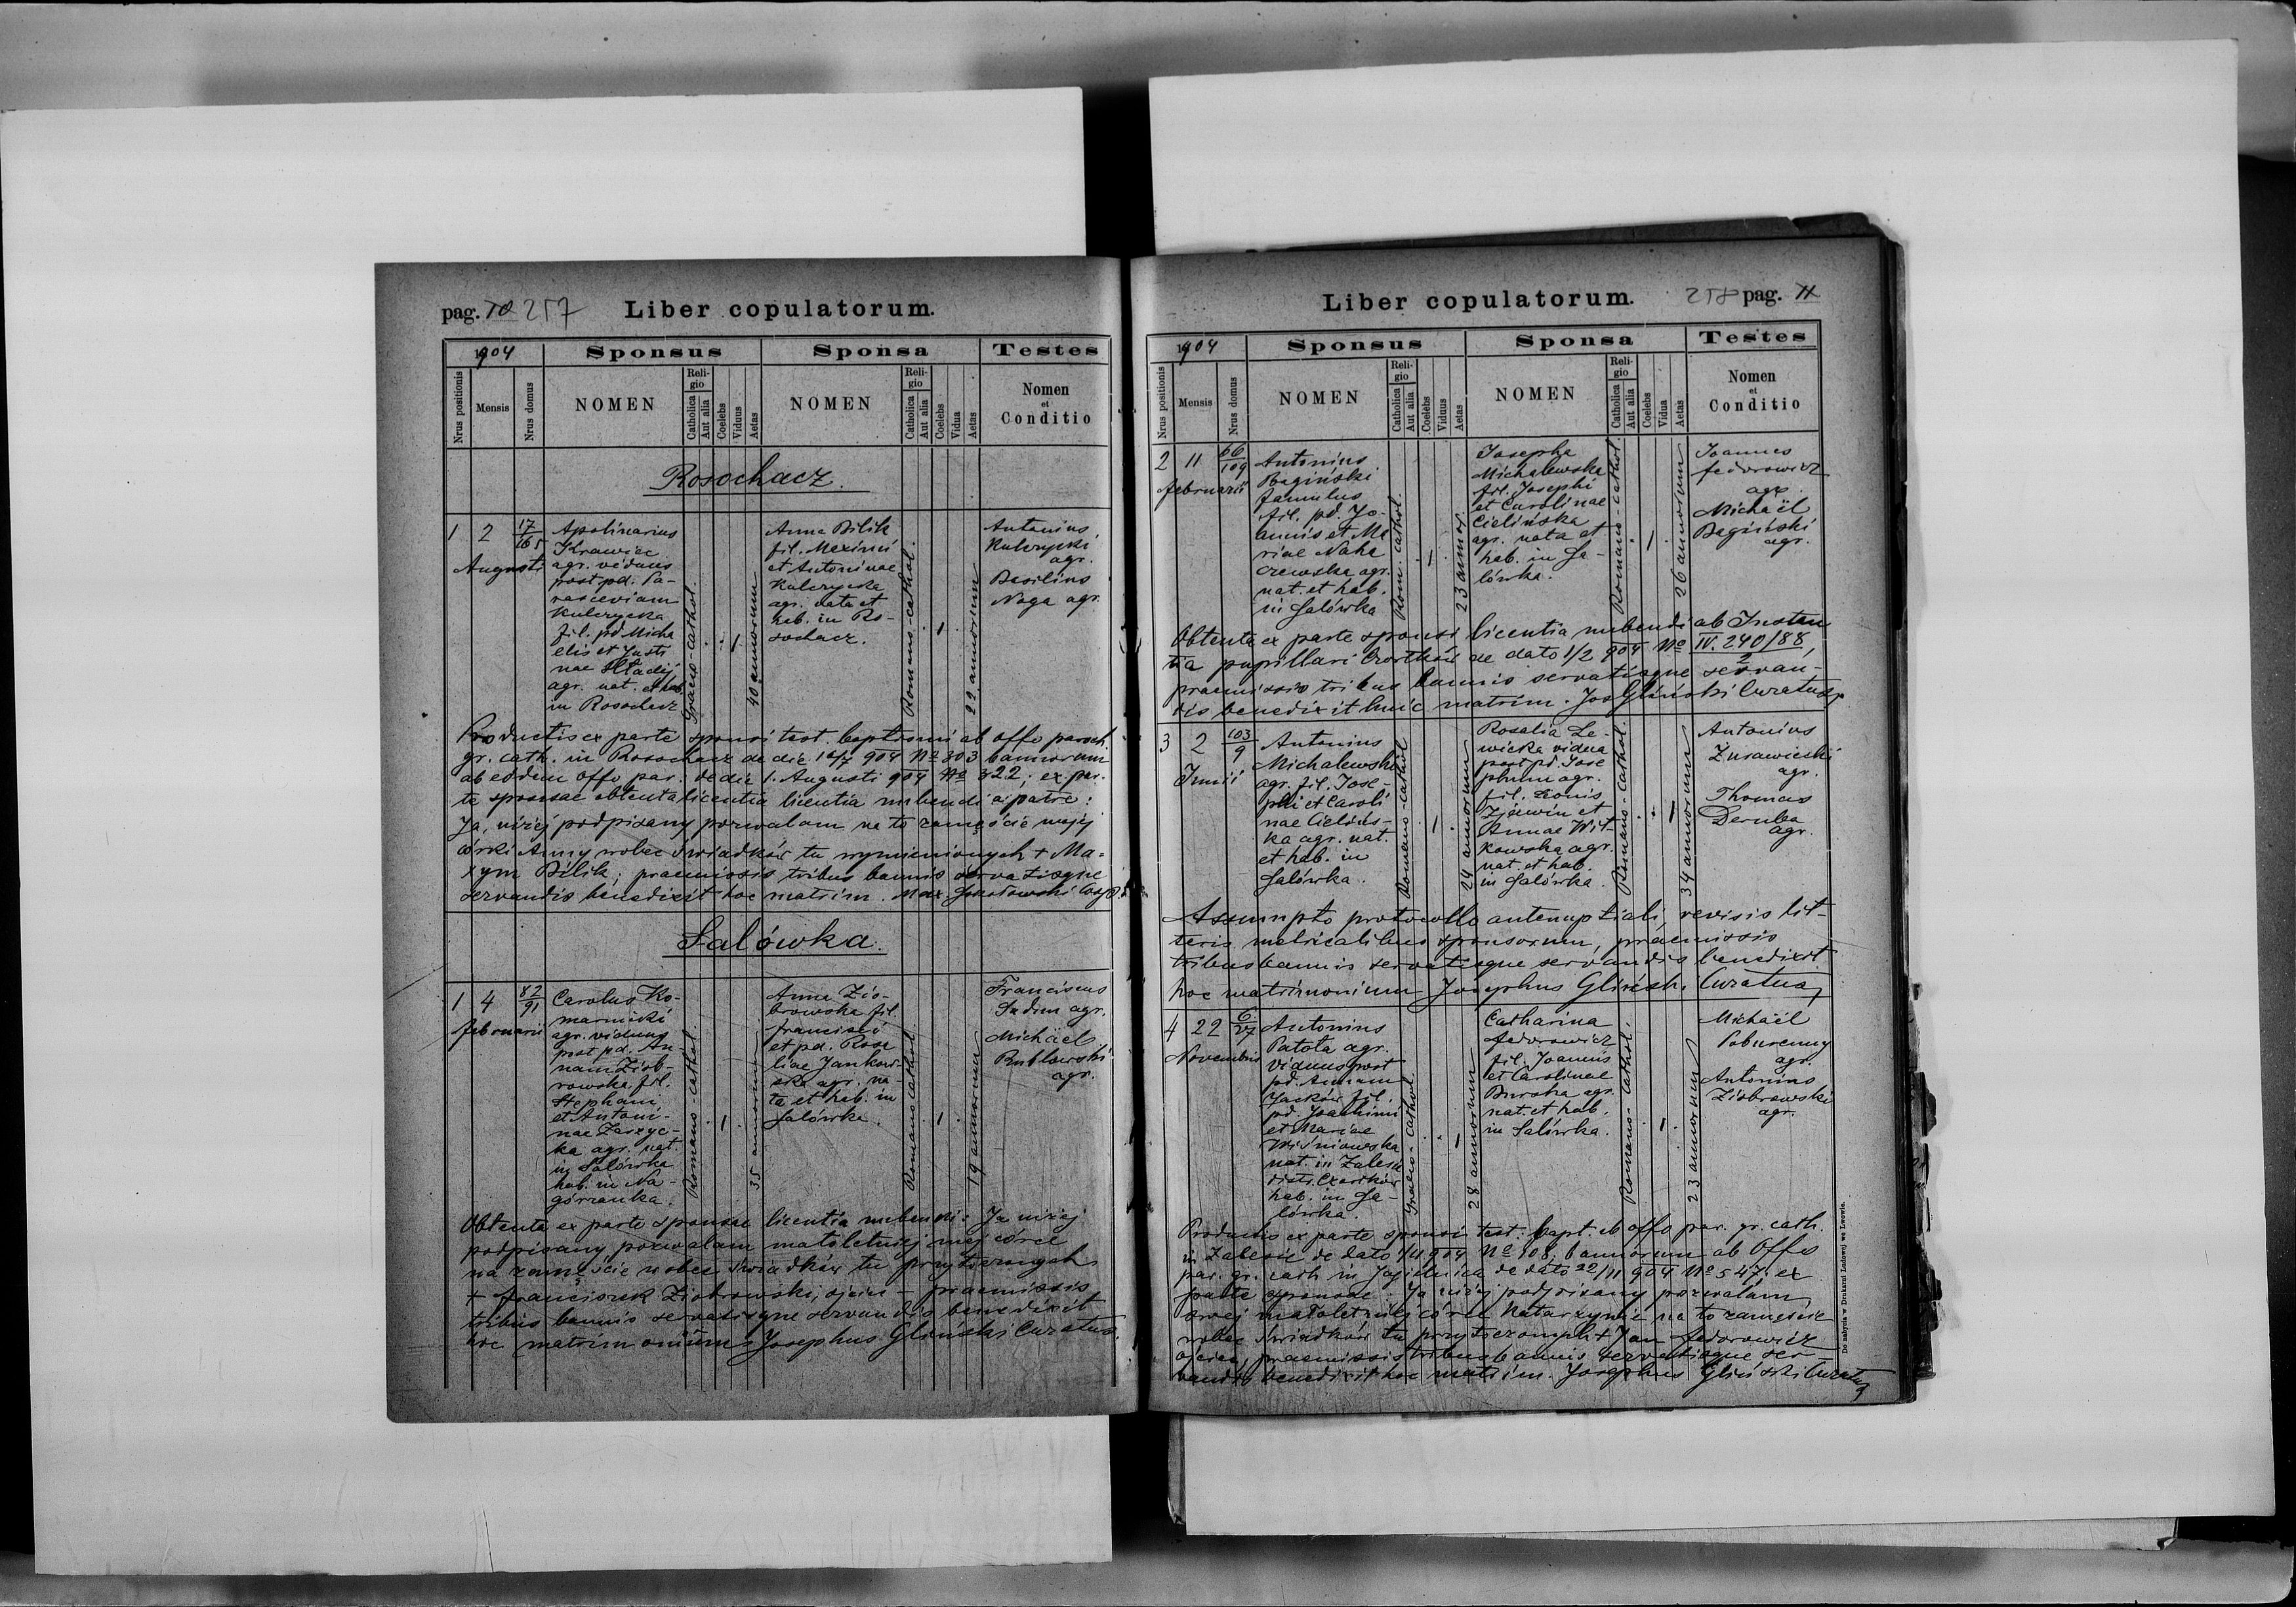 pag. 10 257 Liber copulatorum.
1904 Sponsus Sponsa Testes
Nrus positionis Mensis Nrus domus NOMEN Religio Catholica Aut alia Coelebs Viduus Aetas NOMEN Religio Catholica Aut alia Coelebs Vidua Aetas Nomen et Conditio
Rosochacz.
1 2 17/165
Augusti
Apolinarius
Krawiec
agr. viduus
post pd. Pa-
rasceviam
Kulczycka
fil. pd Micha
elis et Justi
nae Hladij
agr. nat. et hab.
in Rosochacz
Graeco-cathol.
40 annorum
Anna Bilik
fil. Maximi
et Antoninae
Kulczycka
agr. nata et
hab. in Ro-
sochacz.
Romano-cathol.
22 annorum
Antonius
Kulczycki
agr.
Basilius
Noga agr.
Productis ex parte sponsi test baptismi ab offo paroch.
gr. cath. in Rosochacz de die 10/7 904 No 303 bannorum
ab eodem offo par. de die 1. Augusti 904 No 322; ex par-
te sponsae obtenta licentia licentia nubendi a patre:
Ja, niżej podpisany pozwalam na to zamęście mojej
córki Anny wobec świadków tu wymienionych + Ma-
xym Bilik; praemissis tribus bannis servatisque
servandis benedixit hoc matrim. Max.
Salówka.
1 4 82/91
februarii
Carolus Ko-
marnicki
agr. viduus
post pd. An-
nam Ziob-
rowska fil.
Stephani
et Antoni-
nae Zarzyc-
ka agr. nat.
in Salówka
hab. in Na-
górzanka.
Romano-cathol.
35 annorum
Anna Zio-
browska fil.
francisci
et pd. Rosa
liae Jankow-
ska agr. na-
ta et hab. in
Salówka.
Romano cathol.
19 annorum
Franciscus
Sudin agr.
Michaël
Rublowski
agr.
Obtenta ex parte sponsae licentia nubendi: Ja niżej
podpisany pozwalam małoletniej mej córce
na zamęście wobec świadków tu przytoczonych
+ franciszek Ziobrowski, ojciec - praemissis
tribus bannis servatisque servandis benedixit
hoc matrimonium Josephus Gliński Curatus.
Liber copulatorum. 258 pag. 11
1904 Sponsus Sponsa Testes
Nrus positionis Mensis Nrus domus NOMEN Religio Catholica Aut alia Coelebs Viduus Aetas NOMEN Religio Catholica Aut alia Coelebs Vidua Aetas Nomen et Conditio
2 11 66/109
februarii
Antonius
Bagiński
famulus
fil. pd. Jo-
annis et Ma
riae Naha
czewska agr.
nat. et hab.
in Salówka
Rom. cathol.
23 annor.
Josepha
Michalewska
fil. Josephi
et Carolinae
Cielińska
agr. nata et
hab. in Sa-
lówka.
Romano-cathol.
26 annorum
Joannes
fedorowicz
agr.
Michaël
Bagiński
agr.
Obtenta ex parte sponsi licentia nubendi ab Instan
tia pupillari Czortków de dato 1/2 904 No IV. 240/88/2,
praemissis tribus bannis servatisque servan-
dis benedixit huic matrim. Jos Gliński Curatus
3 2 103/9
Junii
Antonius
Michalewski
agr. fil. Jose-
phi et Caroli
nae Cielińs-
ka agr. nat.
et hab. in
Salówka.
Romano-cathol
24 annorum
Rosalia Le-
wicka vidua
post pd. Jose
phum agr.
fil. Leonis
Zjawin et
Annae Wit-
kowska agr.
nat. et hab.
in Salówka.
Romano-cathol.
34 annorum
Antonius
Żurawiecki
agr.
Thomas
Deruba
agr.
Assumpto protocollo antenuptiali, revisis lit-
teris metricalibus sponsorum, praemissis
tribus bannis servatisque servandis benedixit
hoc matrimonium Josephus Gliński Curatus,
4 22 6/27
Novembris
Antonius
Patota agr.
viduus post
pd. Annam
Jacków fil.
pd. Joachimi
et Mariae
Wiśniowska
nat. in Zalesie
distr. Czortków
hab. in Sa-
lówka.
Graeco-cathol.
28 annorum
Catharina
fedorowicz
fil. Joannis
et Carolinae
Buraha agr.
nat. et hab.
in Salówka.
Romano-cathol.
23 annorum
Michaël
Poburenny
agr.
Antonius
Ziobrowski
agr.
Productis ex parte sponsi test. bapt. ab offo par. gr. cath.
in Zalesie de dato 1/11 904 No 108; bannorum ab Offo
par. gr. cath in Jagielnica de dato 22/11 904 No 547. ex
parte sponsae: Ja niżej podpisany pozwalam
swej małoletniej córce Katarzynie na to zamęście
wobec świadków tu przytoczonych + Jan fedorowicz
ojciec, praemissis tribus bannis servatisque ser-
vandis benedixit hoc matrim. Josephus Gliński Curatus
Do nabycia w Drukarni Ludowej we Lwowie.